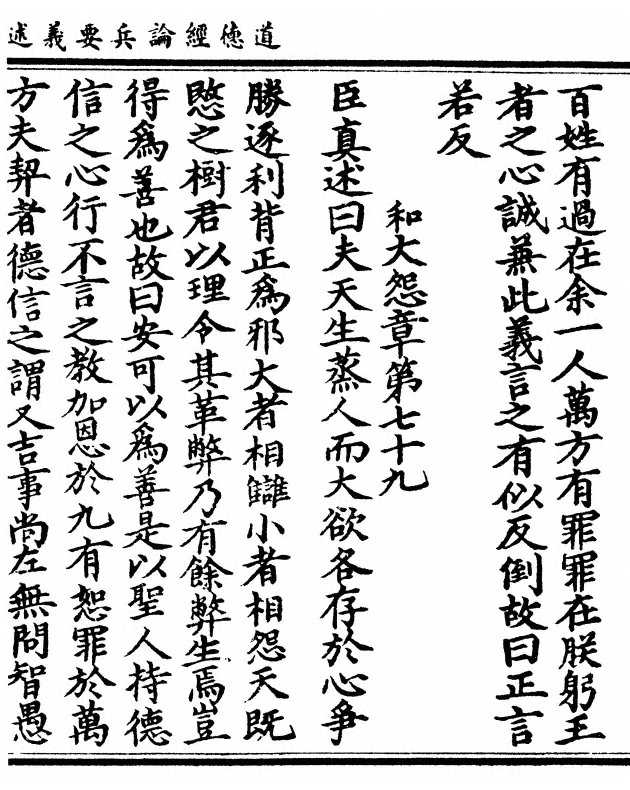 道德經論兵要義述
百姓有過在余一人萬方有罪罪在朕躬王
者之心誠兼此義言之有似反倒故曰正言
若反
和大怨章第七十九
臣真述曰夫天生蒸人而大欲各存於心爭
勝逐利背正為邪大者相讎小者相怨天既
愍之樹君以理令其革弊乃有餘弊生焉豈
得為善也故曰安可以為善是以聖人持德
信之心行不言之教加恩於九有恕罪於萬
方夫契者德信之謂又吉事尚左無問智愚